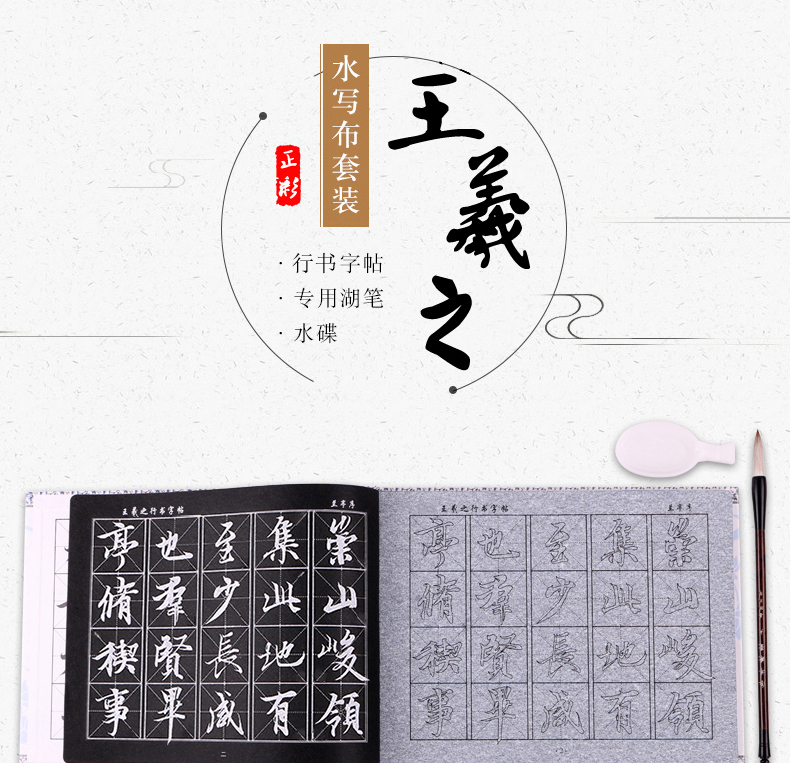 王羲之
水写布套装
正彩
· 行书字帖
· 专用湖笔
· 水碟
王羲之行书字帖
兰亭序
崇山峻領
集此地有
至少長咸
也羣賢畢
亭脩稧事
二
王羲之行书字帖
兰亭序
崇山峻領
集此地有
至少長咸
也羣賢畢
亭脩稧事